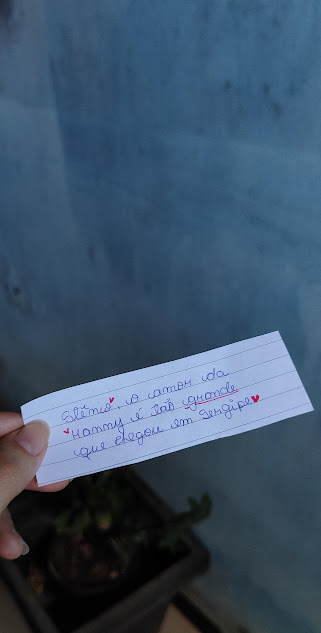 Stênio, o amor da
Hanny é tão grande
que chegou em Sergipe